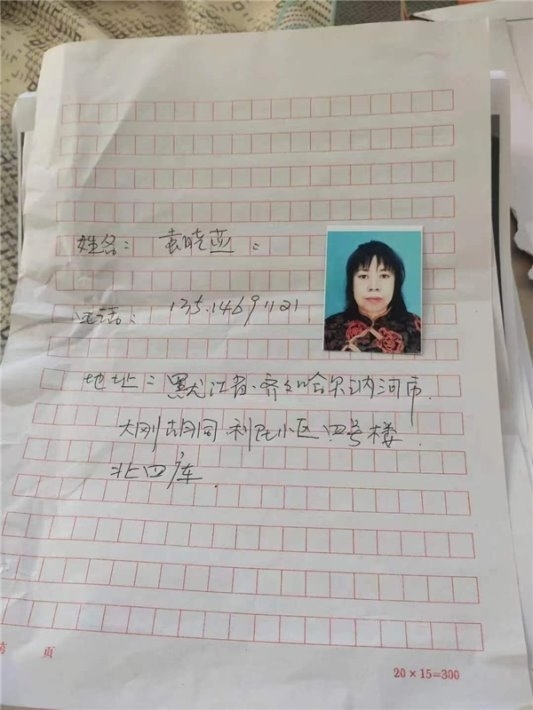 姓名：袁晓燕：
电话：135.14691121
地址：黑龙江省.齐齐哈尔讷河市.
大刚胡同.利民小区.四号楼.
北四库.
页
20×15=300